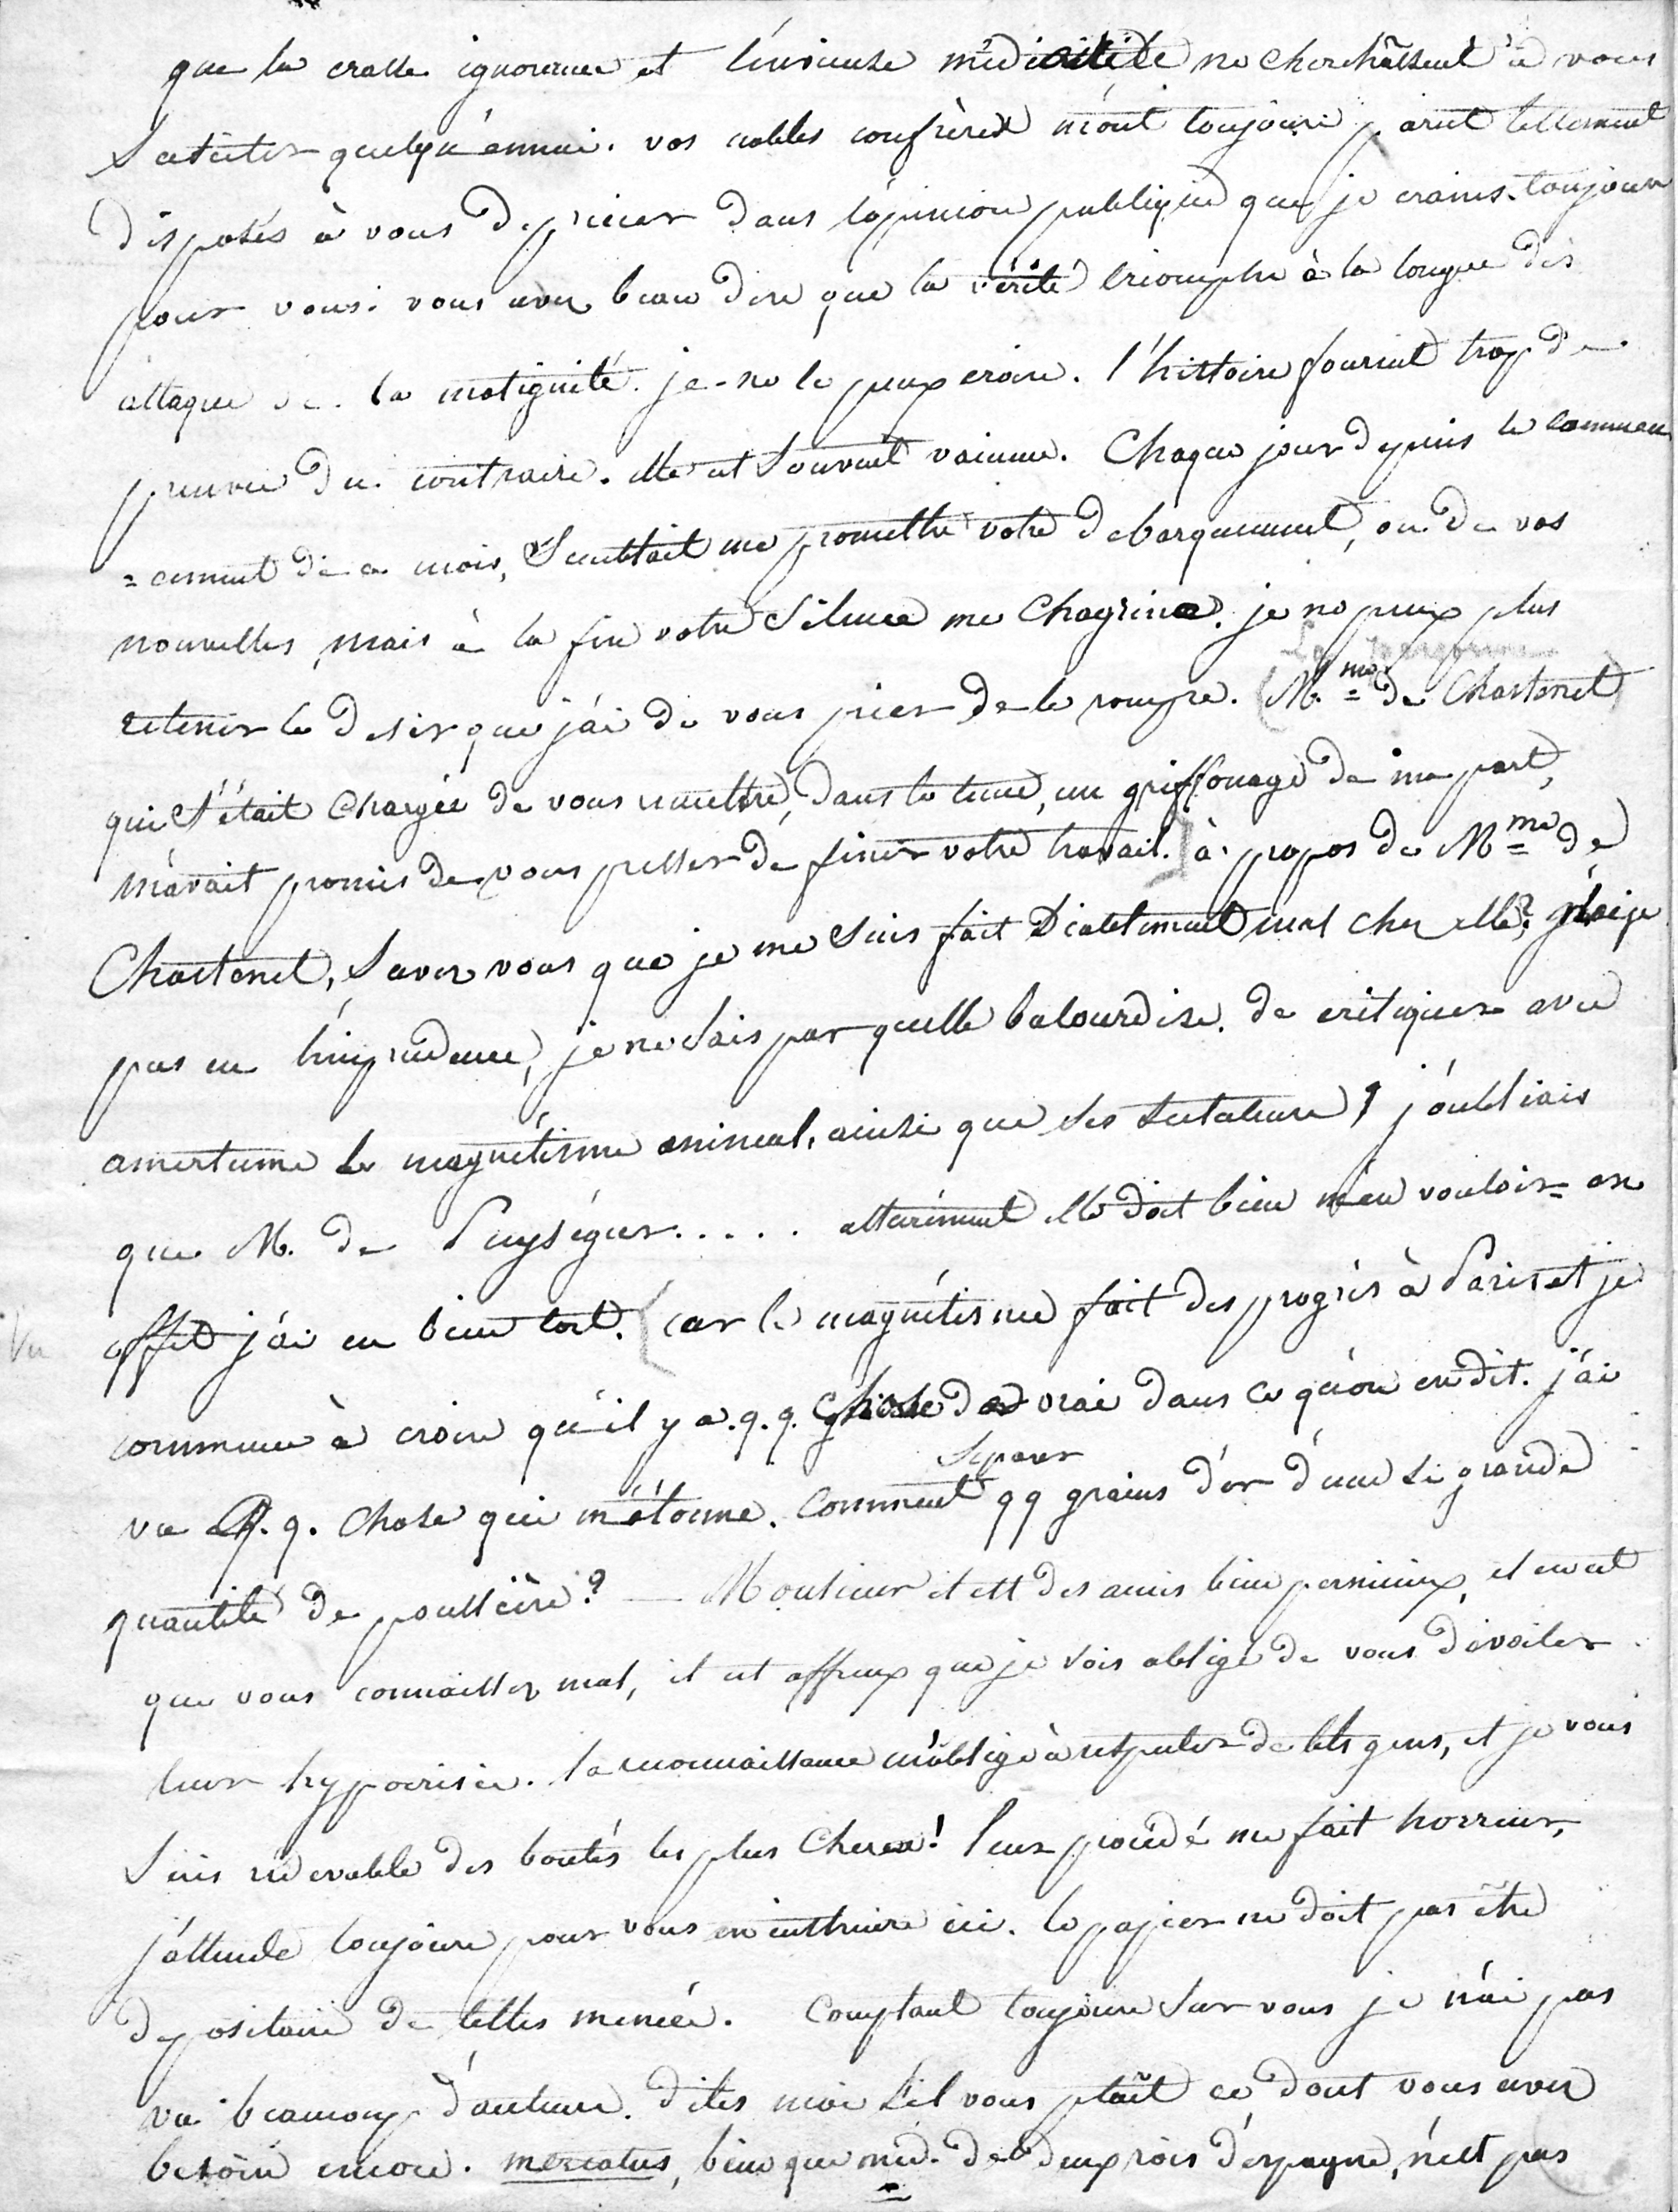 que la crasse ignorance et l'envieuse médiocrité ne cherchâssent à vous
susciter quelqu'ennui. vos nobles confrères m'ont toujours parut tellement
disposés à vous deprécier dans l'opinion publique que je crains toujours
pour vous. vous avez beau dire que la vérité triomphe à la longue des
attaques de la malignité. je ne le peux croire. l'histoire fournit trop de
preuves du contraire. elle est souvent vaincue. Chaque jour depuis le commen
=cement de ce mois, semblait me promettre votre debarquement, ou de vos
nouvelles, mais à la fin votre silence me chagrine. je ne peux plus
retenir le desir que j'ai de vous prier de le rompre. (M.me de Chastenet
qui s'était chargée de vous remettre, dans le tems, un griffonage de ma part,
m'avait promis de vous presser de finir votre travail.) à propos de Mme de
Chastenet, savez vous que je me suis fait Diablement mal chez elle? n'ai je
pas eu l'imprudence, je ne sais par quelle balourdise, de critiquer avec
amertume le magnétisme animal, ainsi que ses sectateurs! j'oubliais
que M. de Puységur..... assurément elle doit bien m'en vouloir = en
effet j'ai eu bien tort. (car le magnétisme fait des progrès à Paris et je
Vu
commence à croire qu'il y a q.q. chose de vrai dans ce qu'on en dit. j'ai
vu q.q. chose qui m'étonne. comment separer qq grains d'or d'une si grande
quantité de poussière? — Monsieur il est des amis bien pernicieux, il en est
que vous connaissez mal, il est affreux que je sois obligé de vous dévoiler
leur hypocrisie. la reconnaissance m'oblige à respecter de tels gens, et je vous
suis redevable des bontés les plus cheres! leur procédé me fait horreur,
j'attends toujours pour vous en instruire ici. le papier ne doit pas être
depositaire de telles menées. Comptant toujours sur vous je n'ai pas
vu beaucoup d'auteurs. dites moi s'il vous plaît ce dont vous avez
besoin encore. mercatus, bien que méd. de deux rois d'espagne, n'est pas